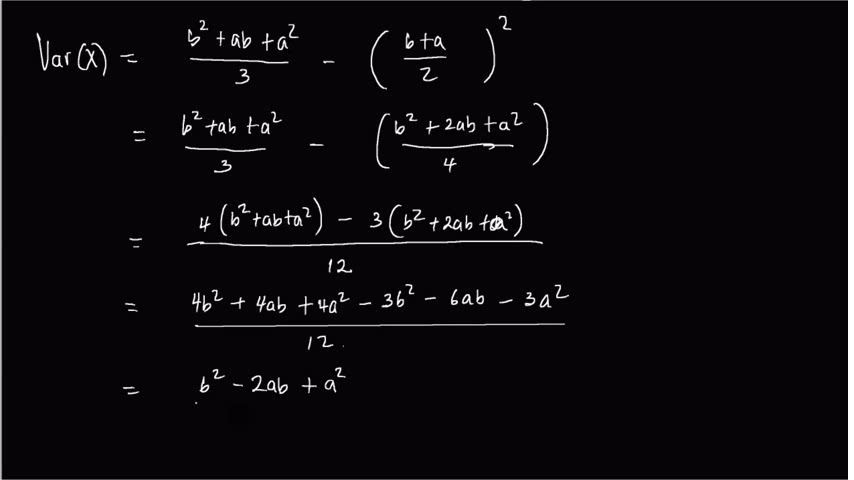 Var(X) = \frac{b^2 + ab + a^2}{3} - \left( \frac{b+a}{2} \right)^2
= \frac{b^2 + ab + a^2}{3} - \left( \frac{b^2 + 2ab + a^2}{4} \right)
= \frac{4(b^2 + ab + a^2) - 3(b^2 + 2ab + a^2)}{12}
= \frac{4b^2 + 4ab + 4a^2 - 3b^2 - 6ab - 3a^2}{12}
= b^2 - 2ab + a^2